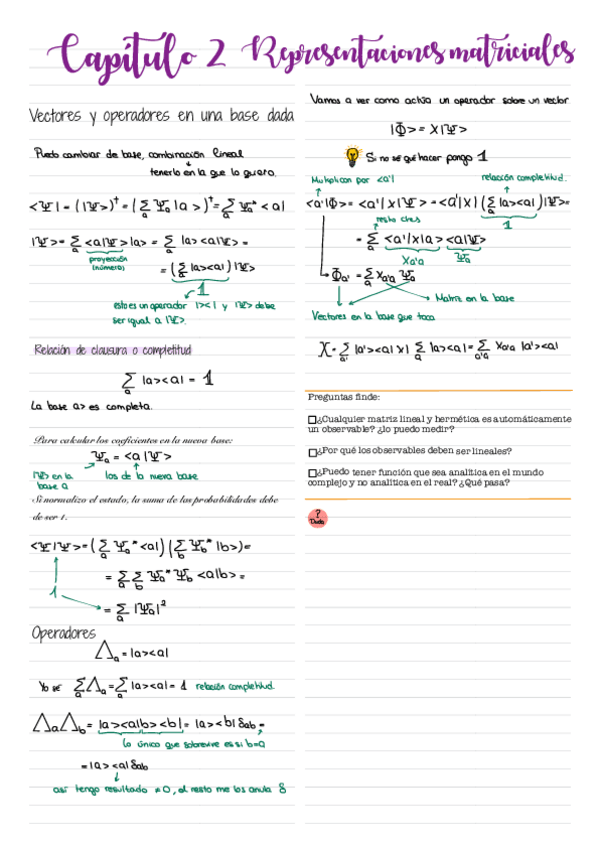 Capítulo 2 Representaciones matriciales
Vectores y operadores en una base dada
Puedo cambiar de base, combinación lineal
tenerlo en la que lo quiero.
<Ψ| = (|Ψ>)† = (∑a Ψa |a>)† = ∑a Ψa* <a|
|Ψ> = ∑a <a|Ψ>|a> = ∑a |a><a|Ψ> =
proyección
(número)
= (∑a |a><a|)|Ψ>
1
esto es un operador |><| y |Ψ> debe
ser igual a |Ψ>.
Relación de clausura o completitud
∑a |a><a| = 1
La base a> es completa.
Para calcular los coeficientes en la nueva base:
Ψa = <a|Ψ>
|Ψ> en la
base a
los de la nueva base
Si normalizo el estado, la suma de las probabilidades debe
de ser 1.
<Ψ|Ψ> = (∑a Ψa* <a|)(∑b Ψb* |b>) =
= ∑a ∑b Ψa* Ψb <a|b> =
1
= ∑a |Ψa|²
Operadores
Λa = |a><a|
Yo sé ∑a Λa = ∑a |a><a| = 1 relación completitud.
ΛaΛb = |a><a|b><b| = |a><b| δab =
lo único que sobrevive es si b=a
= |a><a| δab
así tengo resultado ≠ 0, el resto me los anula δ
Vamos a ver como actúa un operador sobre un vector.
|Φ> = X|Ψ>
Si no sé qué hacer pongo 1
Multiplican por <a'|
relación completitud.
<a'|Φ> = <a'|X|Ψ> = <a'|X|(∑a |a><a|)|Ψ> =
resto ctes
1
= ∑a <a'|X|a> <a|Ψ>
Xa'a Ψa
Φa' = ∑a Xa'a Ψa
Matriz en la base
Vectores en la base que toca
X = ∑a' |a'><a'|X| ∑a |a><a| = ∑a'a Xa'a |a'><a|
Preguntas finde:
¿Cualquier matriz lineal y hermética es automáticamente
un observable? ¿lo puedo medir?
¿Por qué los observables deben ser lineales?
¿Puedo tener función que sea analítica en el mundo
complejo y no analítica en el real? ¿Qué pasa?
?
Duda